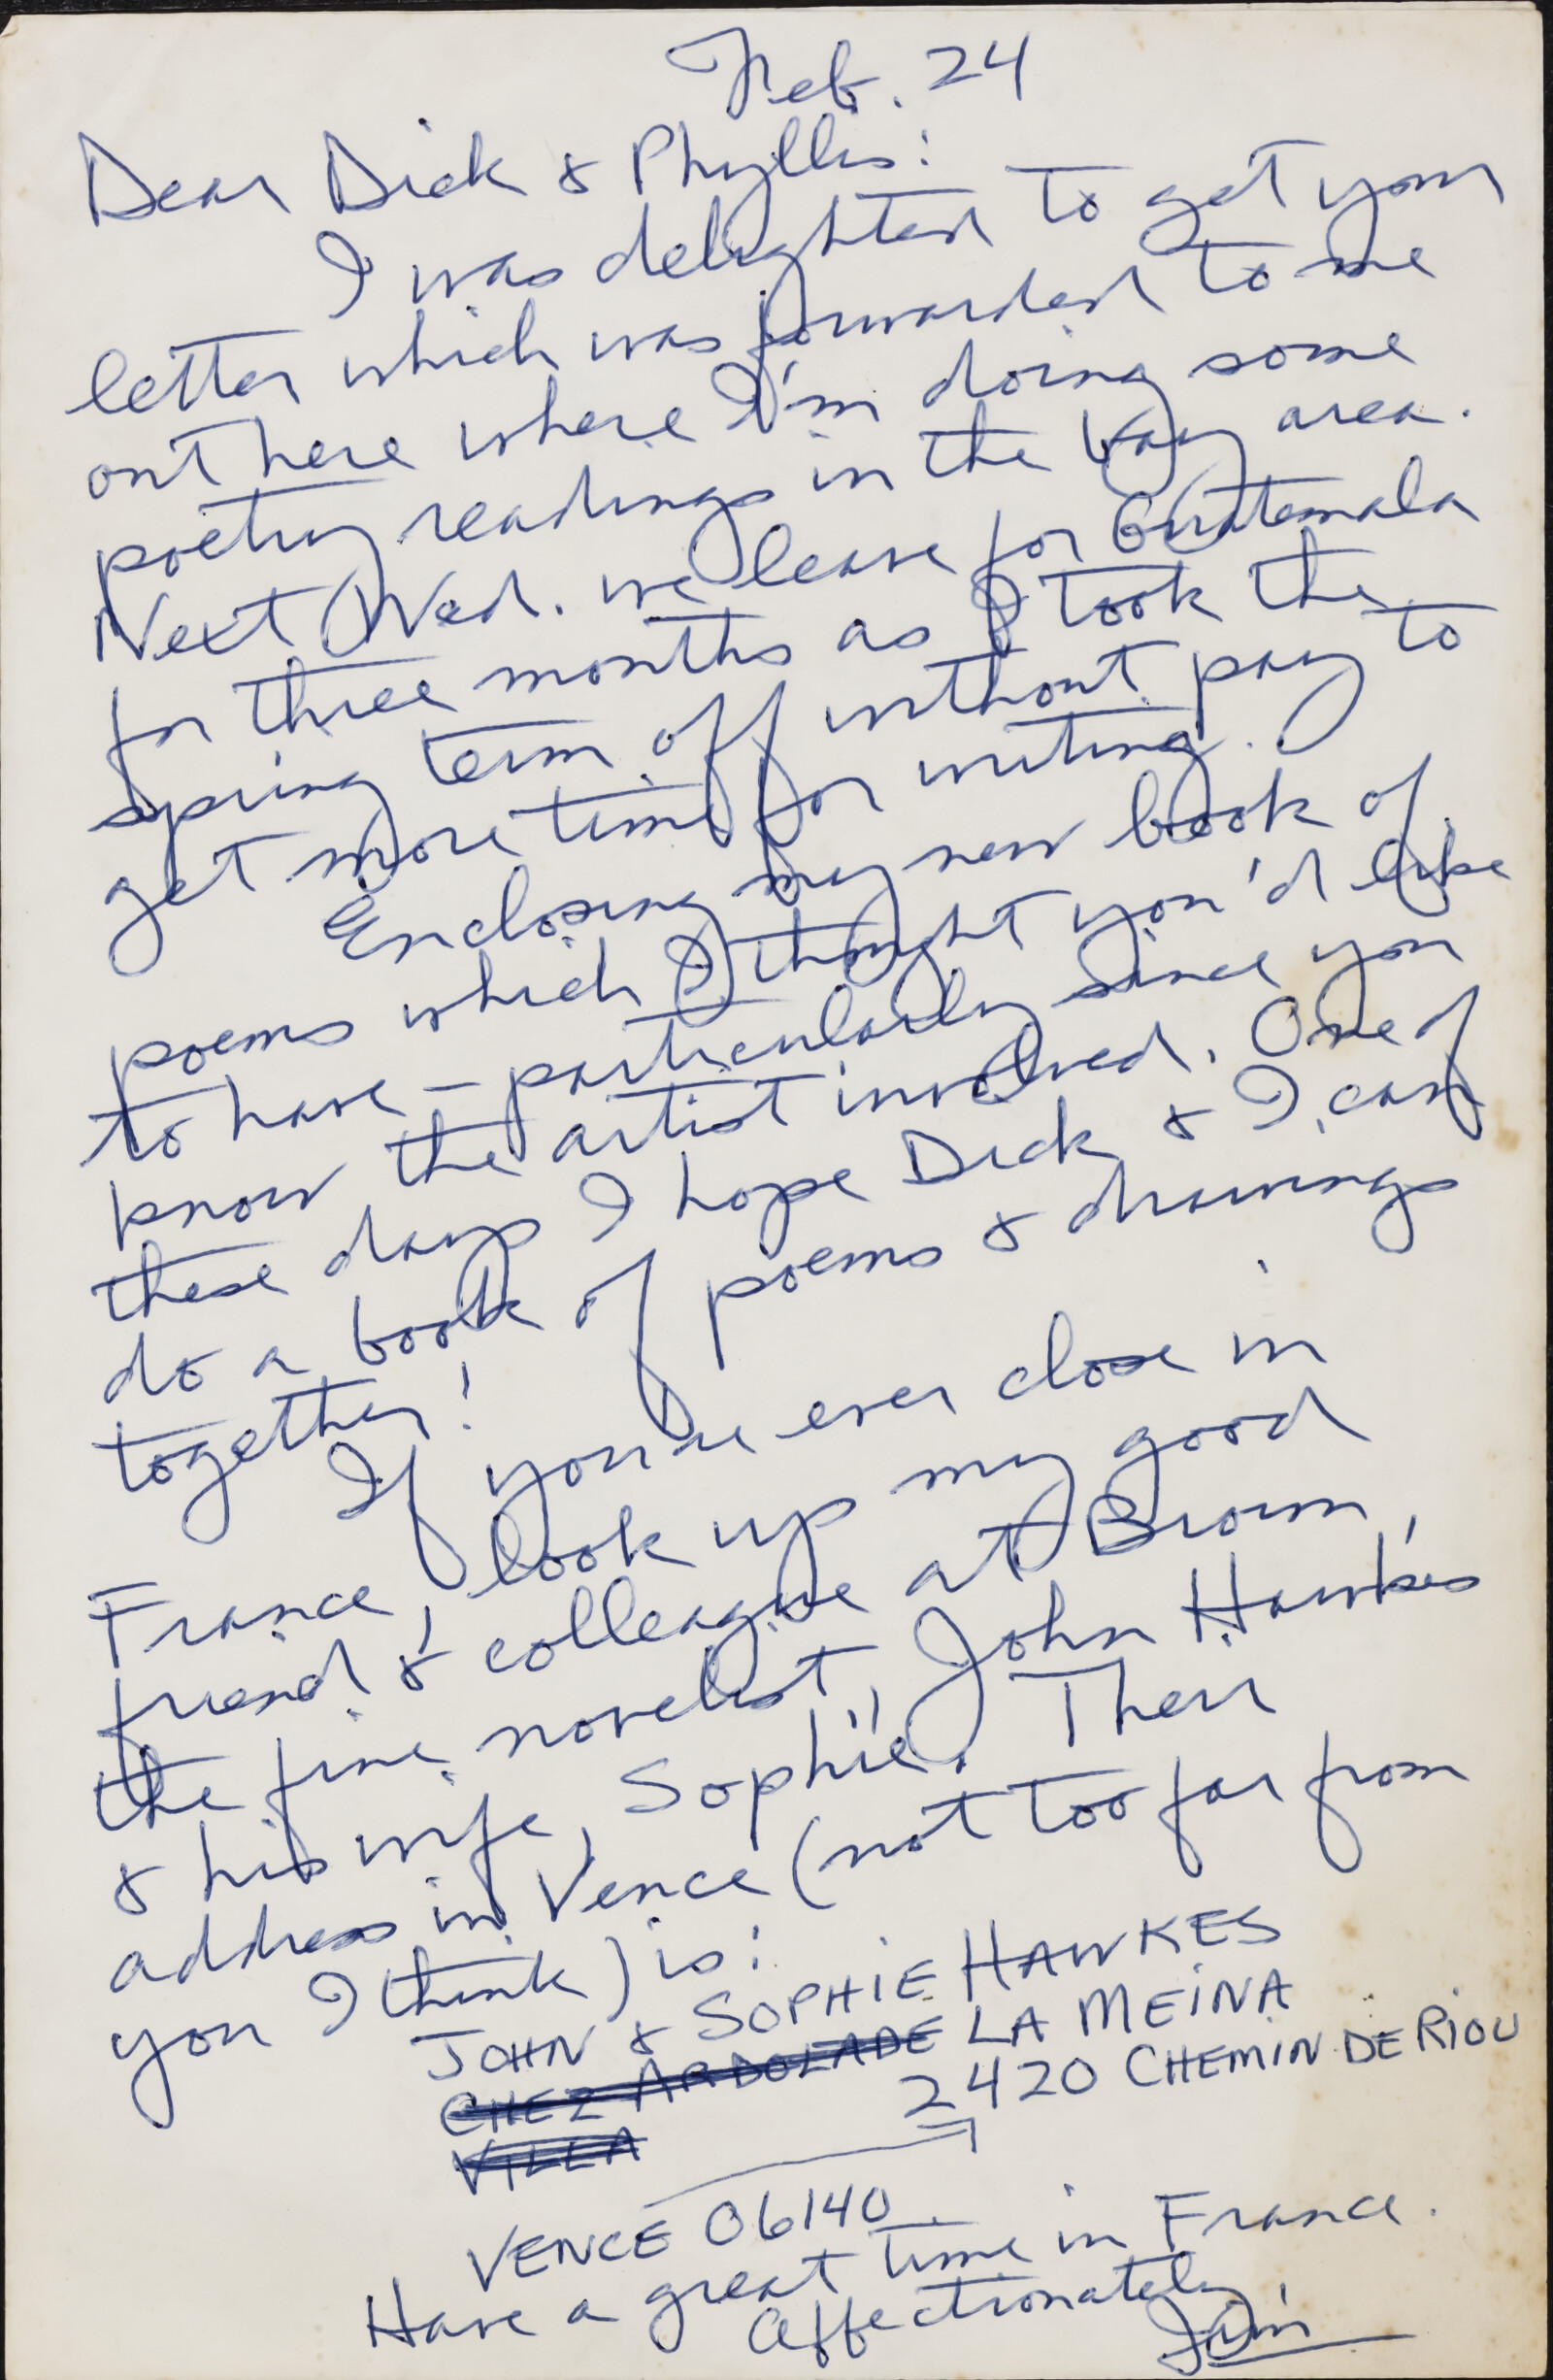 Feb. 24
Dear Dick & Phyllis:
I was delighted to get your
letter which was forwarded to me
out here where I'm doing some
poetry readings in the bay area.
Next Wed. we leave for Guatemala
for three months as I took the
spring term off without pay to
get more time for writing.
Enclosing my new book of
poems which I thought you'd like
to have – particularly since you
know the artist involved. One of
these days I hope Dick & I can
do a book of poems & drawings
together!
If you're ever close in
France, look up my good
friend & colleague at Brown,
the fine novelist, John Hawkes
& his wife, Sophie. Their
address in Vence (not too far from
you I think) is:
JOHN & SOPHIE HAWKES
CHEZ ARDOLADE LA MEINA
VILLA 2420 CHEMIN DE RIOU
VENCE 06140
Have a great time in France.
Affectionately,
Jim